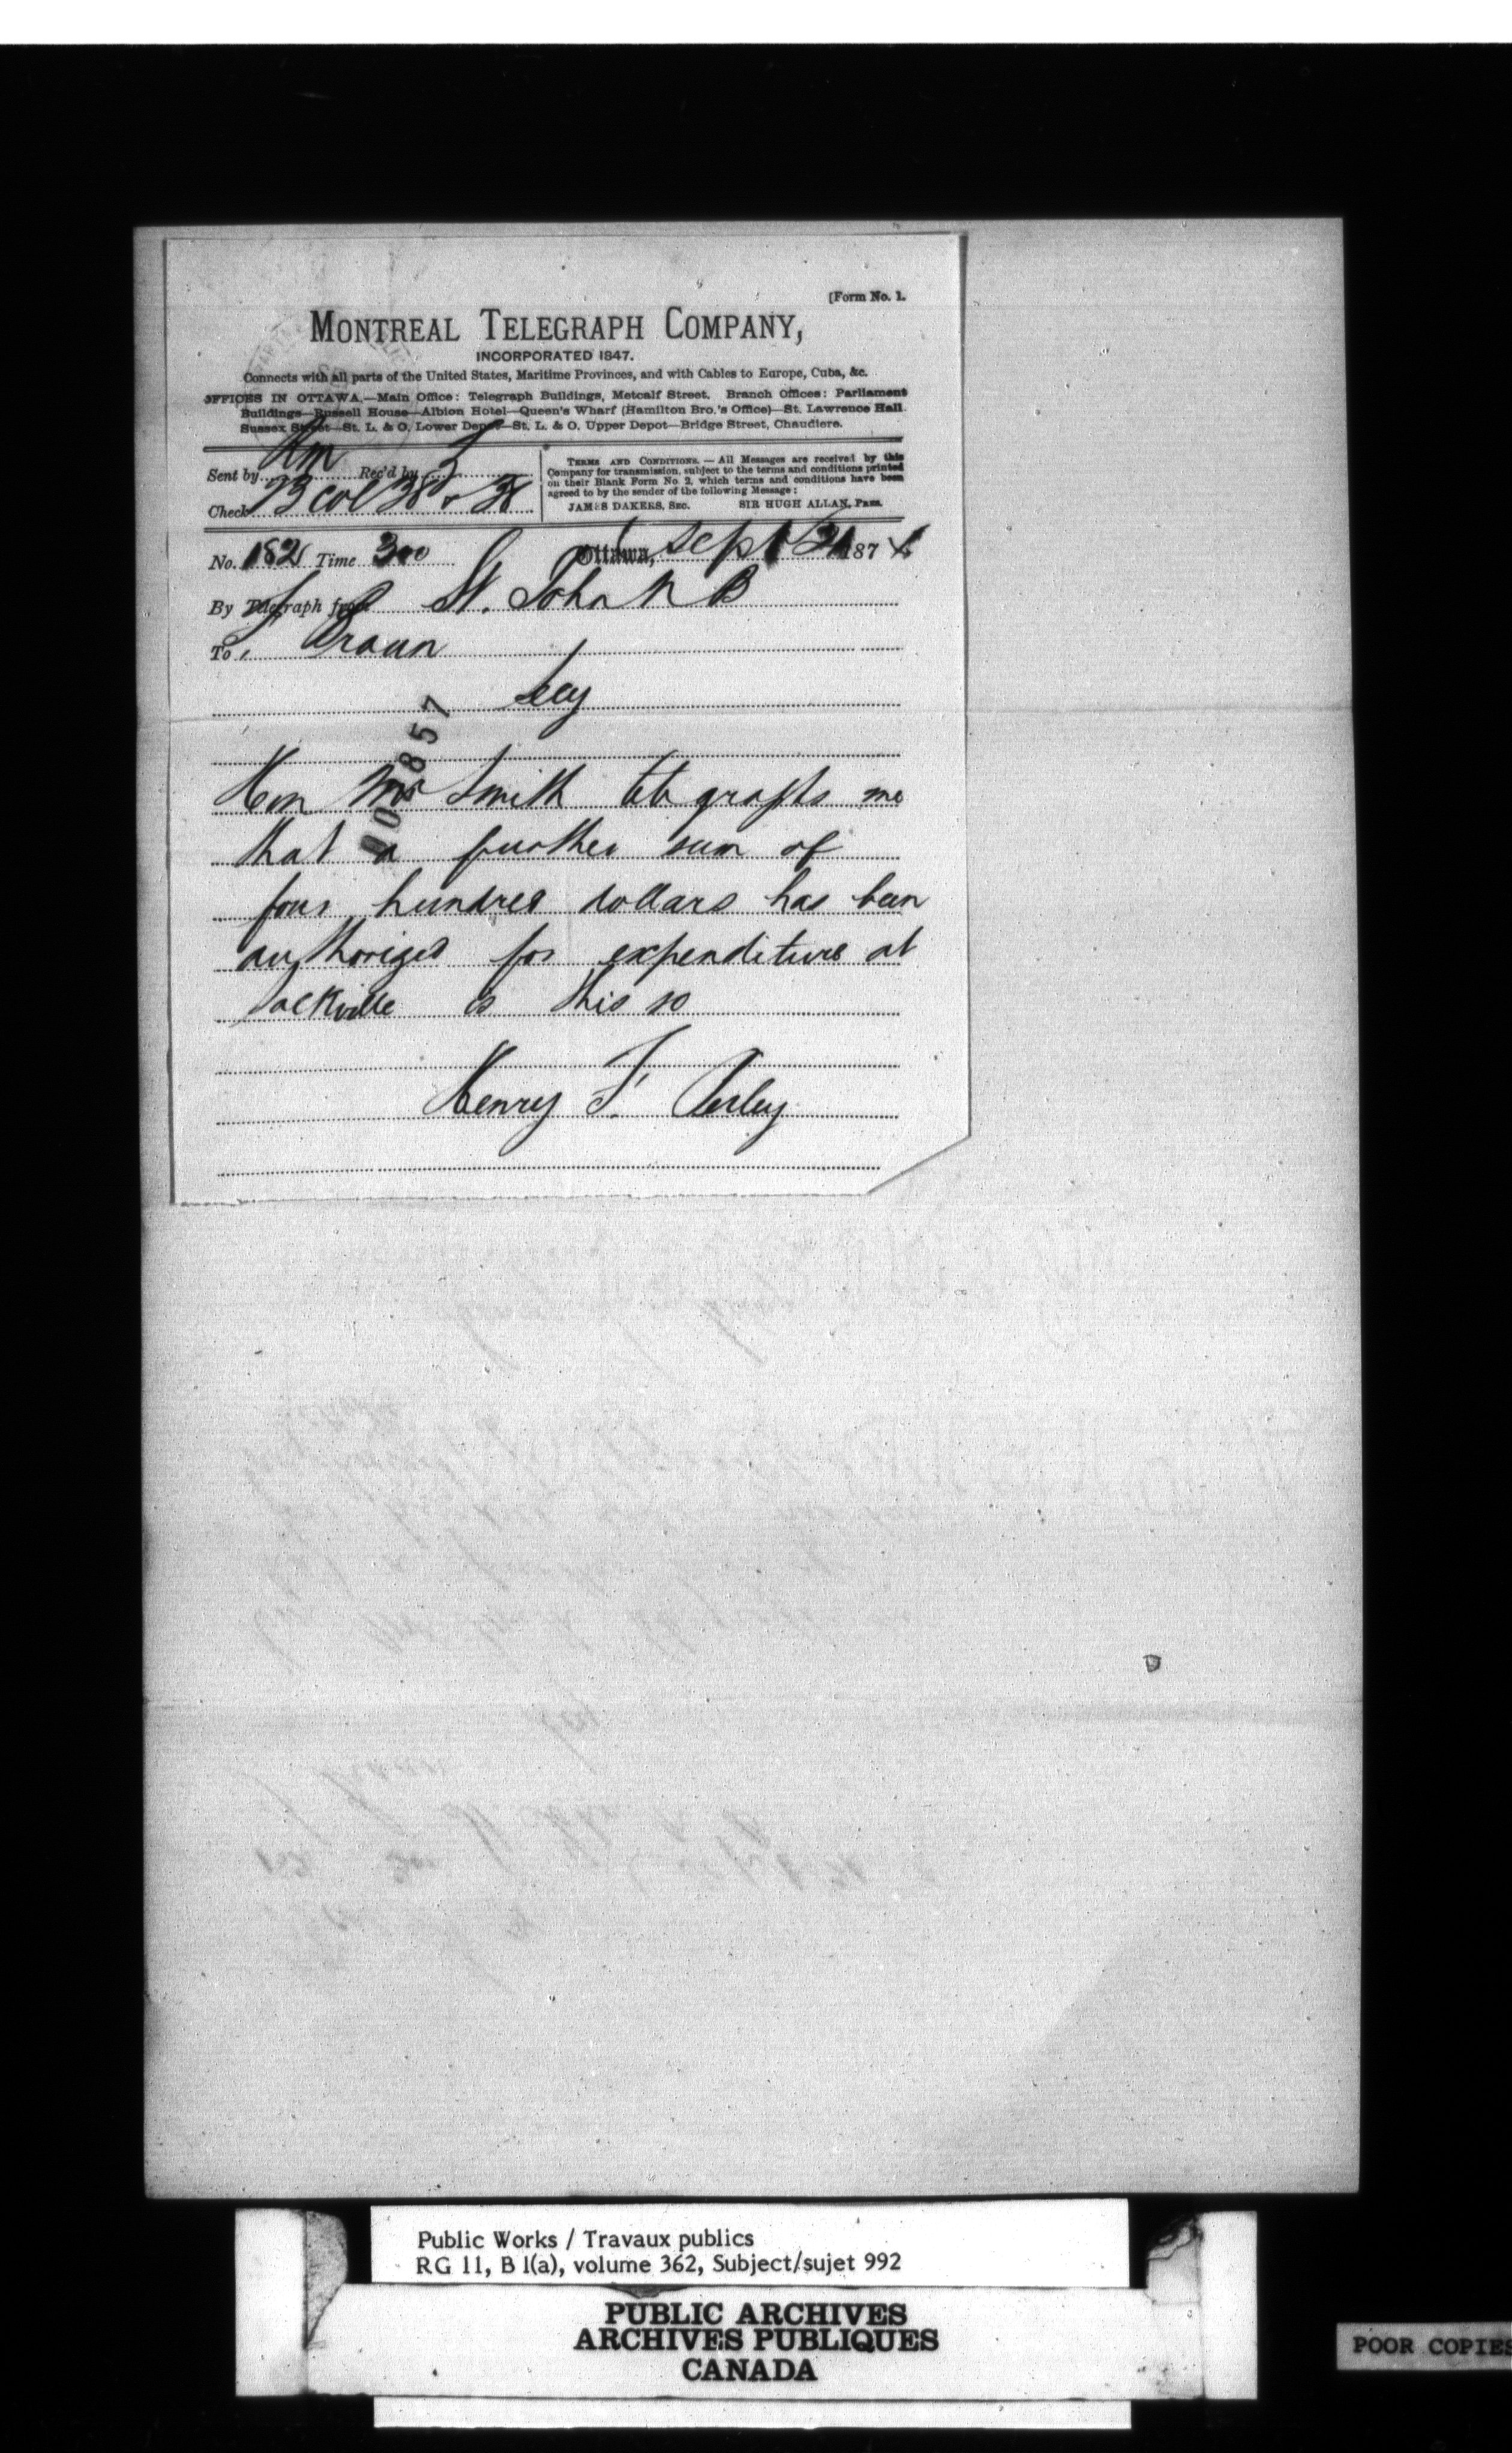 [Form No. 1.
MONTREAL TELEGRAPH COMPANY,
INCORPORATED 1847.
Connects with all parts of the United States, Maritime Provinces, and with Cables to Europe, Cuba, &c.
OFFICES IN OTTAWA.—Main Office: Telegraph Buildings, Metcalf Street. Branch Offices: Parliament
Buildings—Russell House—Albion Hotel—Queen's Wharf (Hamilton Bro.'s Office)—St. Lawrence Hall
Sussex Street—St. L. & O. Lower Depot—St. L. & O. Upper Depot—Bridge Street, Chaudiere.
Sent by Rec'd by
Check
TERMS AND CONDITIONS.—All Messages are received by this
Company for transmission, subject to the terms and conditions printed
on their Blank Form No. 2, which terms and conditions have been
agreed to by the sender of the following Message:
JAMES DAKERS, SEC. SIR HUGH ALLAN, PRES.
No. 182 Time 300 Ottawa, Sept 21 187
By Telegraph from St. John N B
To F Braun
Secy
Hon Mr Smith telegraphs me
that a further sum of
four hundred dollars has been
authorized for expenditure at
Sackville is this so
Henry F. Perley
Public Works / Travaux publics
RG 11, B 1(a), volume 362, Subject/sujet 992
PUBLIC ARCHIVES
ARCHIVES PUBLIQUES
CANADA
POOR COPIES